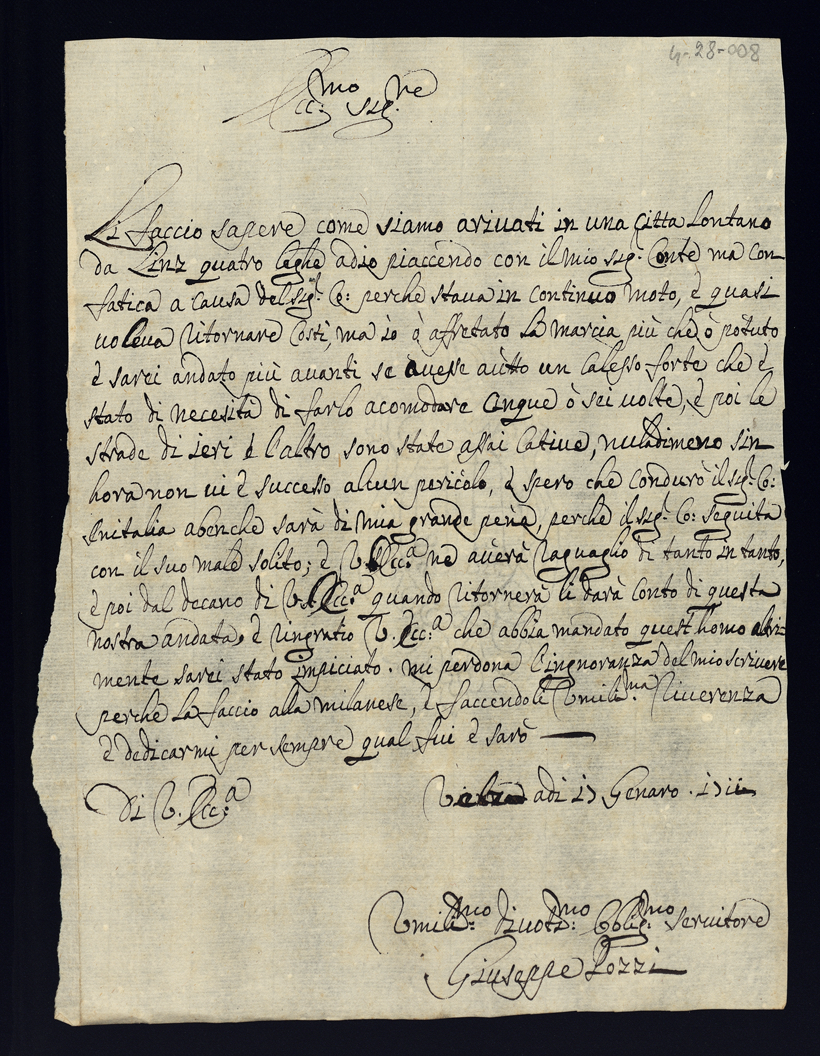 4-28-008
Ecc.mo Sig.re
Li faccio sapere come siamo arivati in una Citta Lontano
da Linz quatro leghe adio piaccendo con il mio sig.r Conte ma con
fatica a causa del sig.r Co: perche stava in continuo moto, è quasi
voleva ritornare Costi, ma io ò affretato la marcia più che ò potuto
è sarei andato più avanti se avesse aùtto un Calesso forte che è
stato di necesità di farlo acomodare Cinque ò sei volte, è poi le
strade di ieri è l'altro sono state assai Cative, nuladimeno sin
hora non vi è successo alcun pericolo, è spero che condurò il sig.r Co:
Initalia abenche sarà di mia grande pene, perche il sig.r Co: seguita
con il suo male solito; è V. Ecc.a ne averà raguaglio di tanto in tanto,
è poi dal decano di V. Ecc.a quando ritornerà li darà conto di questa
nostra andata, è ringratio V. Ecc.a che abbia mandato quest homo altri
mente sarei stato impiciato. mi perdona l'ingnoranza del mio scrivere
perche la faccio alla milanese, è faccendoli Umili.ma Riverenza
è dedicarmi per sempre qual fui è sarò
Di V. Ecc.a
adi 17 Genaro . 1711
Umili.mo Divoti.mo Obblig.mo servitore
Giuseppe Pozzi